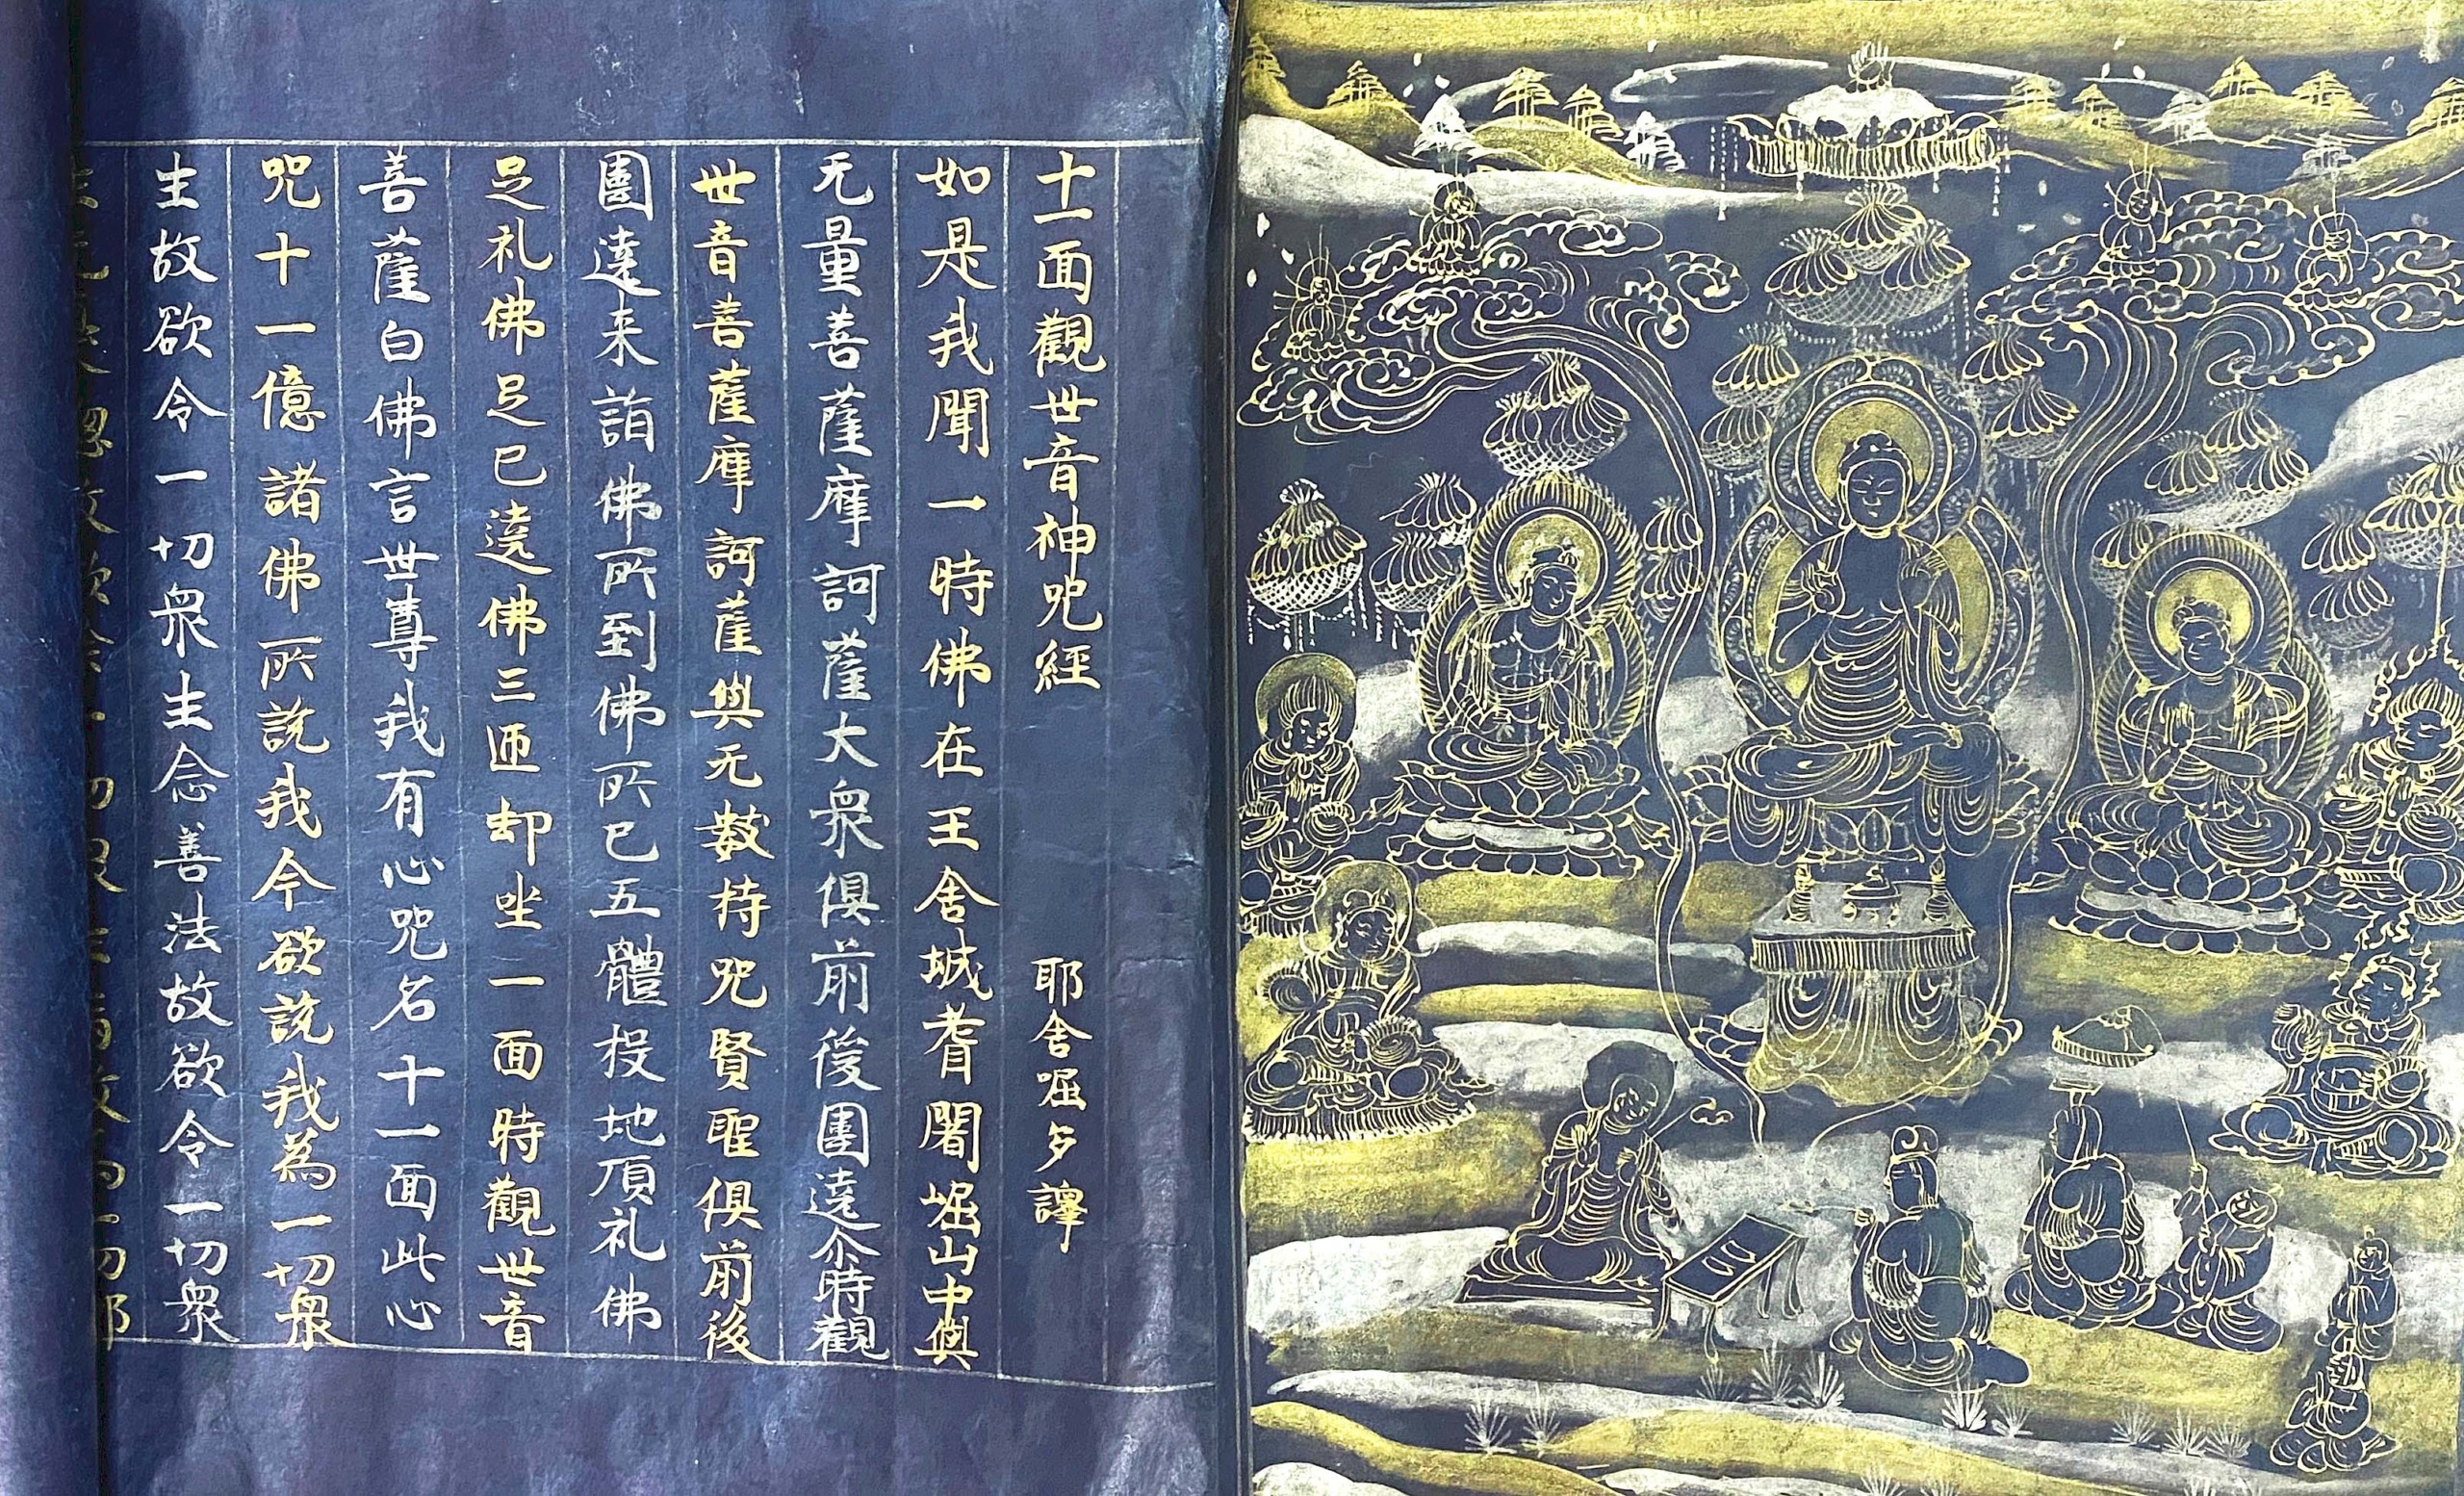 十一面觀世音神呪經 耶舍崛多譯
如是我聞一時佛在王舍城耆闍崛山中與
无量善薩摩訶薩大衆俱前後圍遶尒時觀
世音善薩摩訶薩與无數持呪賢聖俱前後
圍遶来詣佛所到佛所已五體投地頂礼佛
足礼佛足已遶佛三迊却坐一面時觀世音
善薩白佛言世尊我有心呪名十一面此心
呪十一億諸佛所說我今欲說我為一切衆
生故欲令一切衆生念善法故欲令一切衆